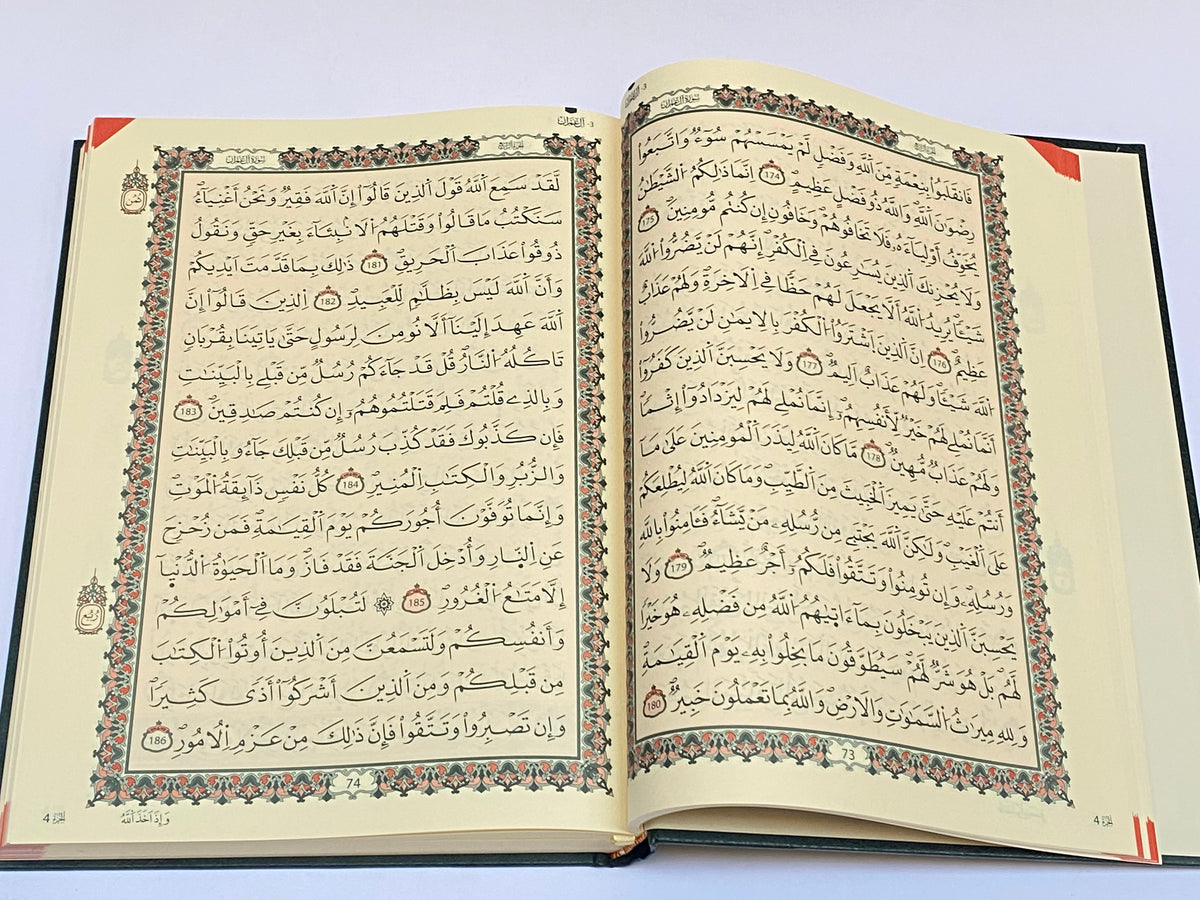 3- آل عمران
سورة آل عمران
الجزء الرابع
فَانقَلَبُواْ بِنِعْمَةٍ مِّنَ اَللَّهِ وَفَضْلٍ لَّمْ يَمْسَسْهُمْ سُوٓءٌ وَاتَّبَعُواْ
رِضْوَٰنَ اَللَّهِ وَاللَّهُ ذُو فَضْلٍ عَظِيمٍ 174 اِنَّمَا ذَٰلِكُمُ الشَّيْطَٰنُ
يُخَوِّفُ أَوْلِيَآءَهُۥ فَلَا تَخَافُوهُمْ وَخَافُونِ إِن كُنتُم مُّومِنِينَ 175
وَلَا يُحْزِنكَ اَلذِينَ يُسَٰرِعُونَ فِے اِلْكُفْرِ إِنَّهُمْ لَنْ يَّضُرُّواْ اُللَّهَ
شَيْـٔاً يُرِيدُ اُللَّهُ أَلَّا يَجْعَلَ لَهُمْ حَظّاً فِے اِلَاخِرَةِ وَلَهُمْ عَذَابٌ
عَظِيمٌ 176 اِنَّ اَلذِينَ اَشْتَرَوُاْ اُلْكُفْرَ بِالِايمَٰنِ لَنْ يَّضُرُّواْ
اُللَّهَ شَيْـٔاً وَلَهُمْ عَذَابٌ اَلِيمٌ 177 وَلَا يَحْسِبَنَّ اَلذِينَ كَفَرُوٓاْ
أَنَّمَا نُمْلِے لَهُمْ خَيْرٌ لِّأَنفُسِهِمُۥٓ إِنَّمَا نُمْلِے لَهُمْ لِيَزْدَادُوٓاْ إِثْماً
وَلَهُمْ عَذَابٌ مُّهِينٌ 178 مَّا كَانَ اَللَّهُ لِيَذَرَ اَلْمُومِنِينَ عَلَىٰ مَآ
أَنتُمْ عَلَيْهِ حَتَّىٰ يَمِيزَ اَلْخَبِيثَ مِنَ اَلطَّيِّبِ وَمَا كَانَ اَللَّهُ لِيُطْلِعَكُمْ
عَلَى اَلْغَيْبِ وَلَٰكِنَّ اَللَّهَ يَجْتَبِے مِن رُّسُلِهِۦ مَنْ يَّشَآءُ فَـَٔامِنُواْ بِاللَّهِ
وَرُسُلِهِۦ وَإِن تُومِنُواْ وَتَتَّقُواْ فَلَكُمُۥٓ أَجْرٌ عَظِيمٌ 179 وَلَا
يَحْسِبَنَّ اَلذِينَ يَبْخَلُونَ بِمَآ ءَاتَىٰهُمُ اُللَّهُ مِن فَضْلِهِۦ هُوَ خَيْراً
لَّهُم بَلْ هُوَ شَرٌّ لَّهُمْ سَيُطَوَّقُونَ مَا بَخِلُواْ بِهِۦ يَوْمَ اَلْقِيَٰمَةِ
وَلِلهِ مِيرَٰثُ اُلسَّمَٰوَٰتِ وَالَارْضِ وَاللَّهُ بِمَا تَعْمَلُونَ خَبِيرٌ 180
73
4 الجزء
3- آل عمران
سورة آل عمران
الجزء الرابع
لَّقَدْ سَمِعَ اَللَّهُ قَوْلَ اَلذِينَ قَالُوٓاْ إِنَّ اَللَّهَ فَقِيرٌ وَنَحْنُ أَغْنِيَآءُ
سَنَكْتُبُ مَا قَالُواْ وَقَتْلَهُمُ اُلَانۢبِـَٔآءَ بِغَيْرِ حَقٍّ وَنَقُولُ
ذُوقُواْ عَذَابَ اَلْحَرِيقِ 181 ذَٰلِكَ بِمَا قَدَّمَتَ اَيْدِيكُمْ
وَأَنَّ اَللَّهَ لَيْسَ بِظَلَّٰمٍ لِّلْعَبِيدِ 182 اِلذِينَ قَالُوٓاْ إِنَّ
اَللَّهَ عَهِدَ إِلَيْنَآ أَلَّا نُومِنَ لِرَسُولٍ حَتَّىٰ يَاتِيَنَا بِقُرْبَانٍ
تَاكُلُهُ اُلنَّارُ قُلْ قَدْ جَآءَكُمْ رُسُلٌ مِّن قَبْلِے بِالْبَيِّنَٰتِ
وَبِالذِے قُلْتُمْ فَلِمَ قَتَلْتُمُوهُمُۥٓ إِن كُنتُمْ صَٰدِقِينَ 183
فَإِن كَذَّبُوكَ فَقَدْ كُذِّبَ رُسُلٌ مِّن قَبْلِكَ جَآءُو بِالْبَيِّنَٰتِ
وَالزُّبُرِ وَالْكِتَٰبِ اِلْمُنِيرِ 184 كُلُّ نَفْسٍ ذَآئِقَةُ اُلْمَوْتِ
وَإِنَّمَا تُوَفَّوْنَ أُجُورَكُمْ يَوْمَ اَلْقِيَٰمَةِ فَمَن زُحْزِحَ
عَنِ اِلنّ۪ارِ وَأُدْخِلَ اَلْجَنَّةَ فَقَدْ فَازَ وَمَا اَلْحَيَوٰةُ اُلدُّنْيَآ
إِلَّا مَتَٰعُ اُلْغُرُورِ 185 ۞ لَتُبْلَوُنَّ فِےٓ أَمْوَٰلِكُمْ
وَأَنفُسِكُمْ وَلَتَسْمَعُنَّ مِنَ اَلذِينَ أُوتُواْ اُلْكِتَٰبَ
مِن قَبْلِكُمْ وَمِنَ اَلذِينَ أَشْرَكُوٓاْ أَذىً كَثِيراً
وَإِن تَصْبِرُواْ وَتَتَّقُواْ فَإِنَّ ذَٰلِكَ مِنْ عَزْمِ اِلُامُورِ 186
ثمن
ربع
74
وَإِذَ اَخَذَ اَللَّهُ
4 الجزء